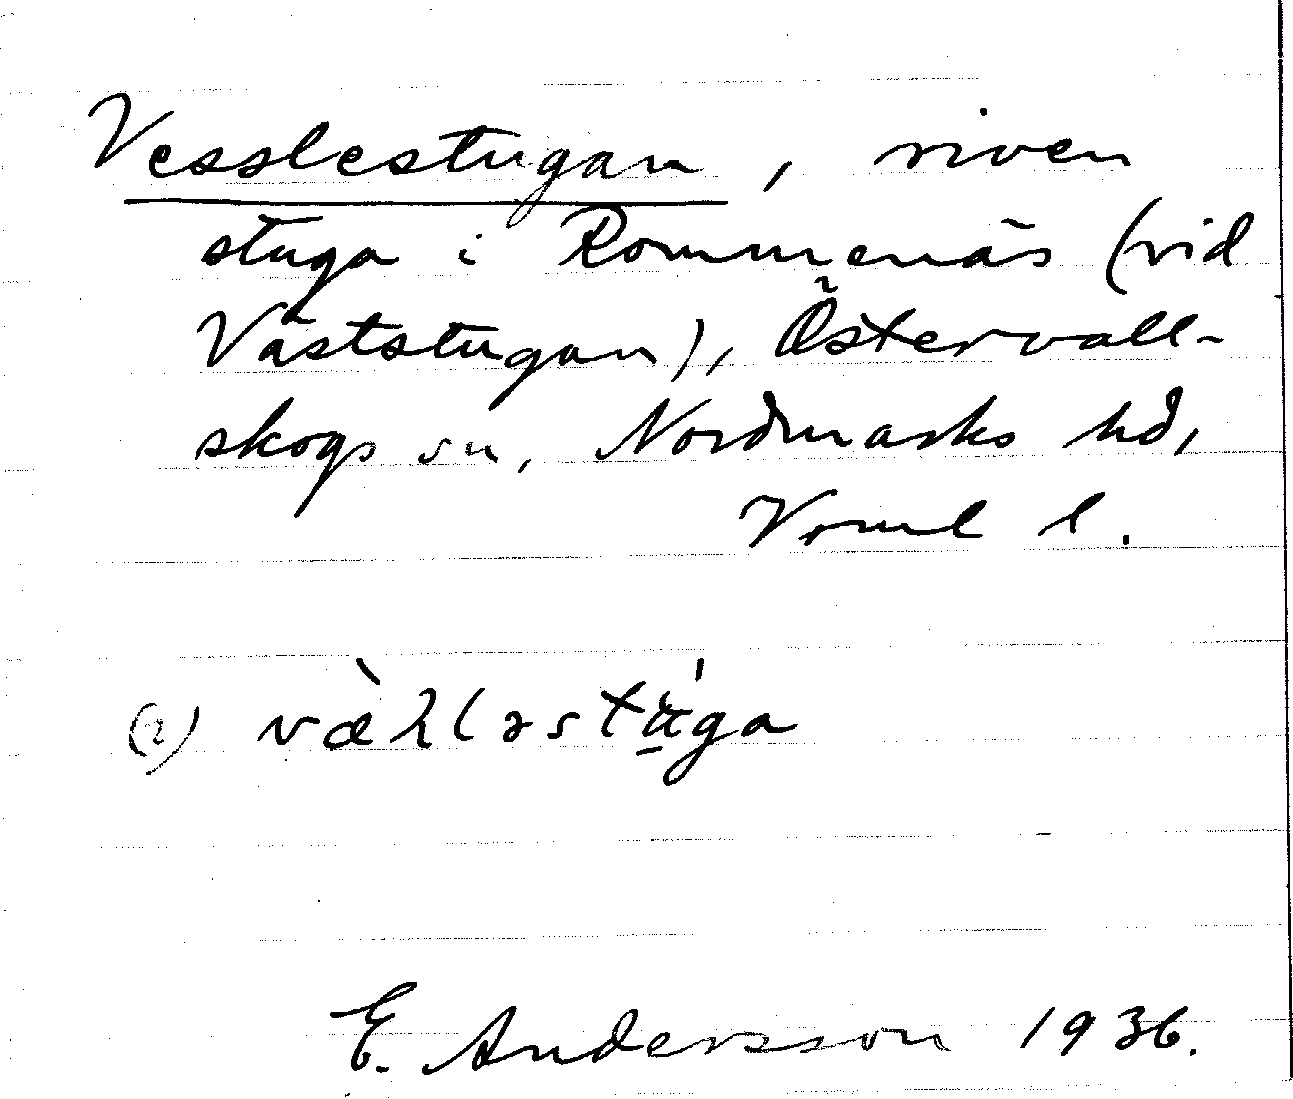 Vesslestugan, riven
stuga i Rommenäs (vid
Väststugan), Östervall-
skogs sn, Nordmarks hd,
Vrml l.
(2) væ̀λləstu̠̇́ga
E. Andersson 1936.